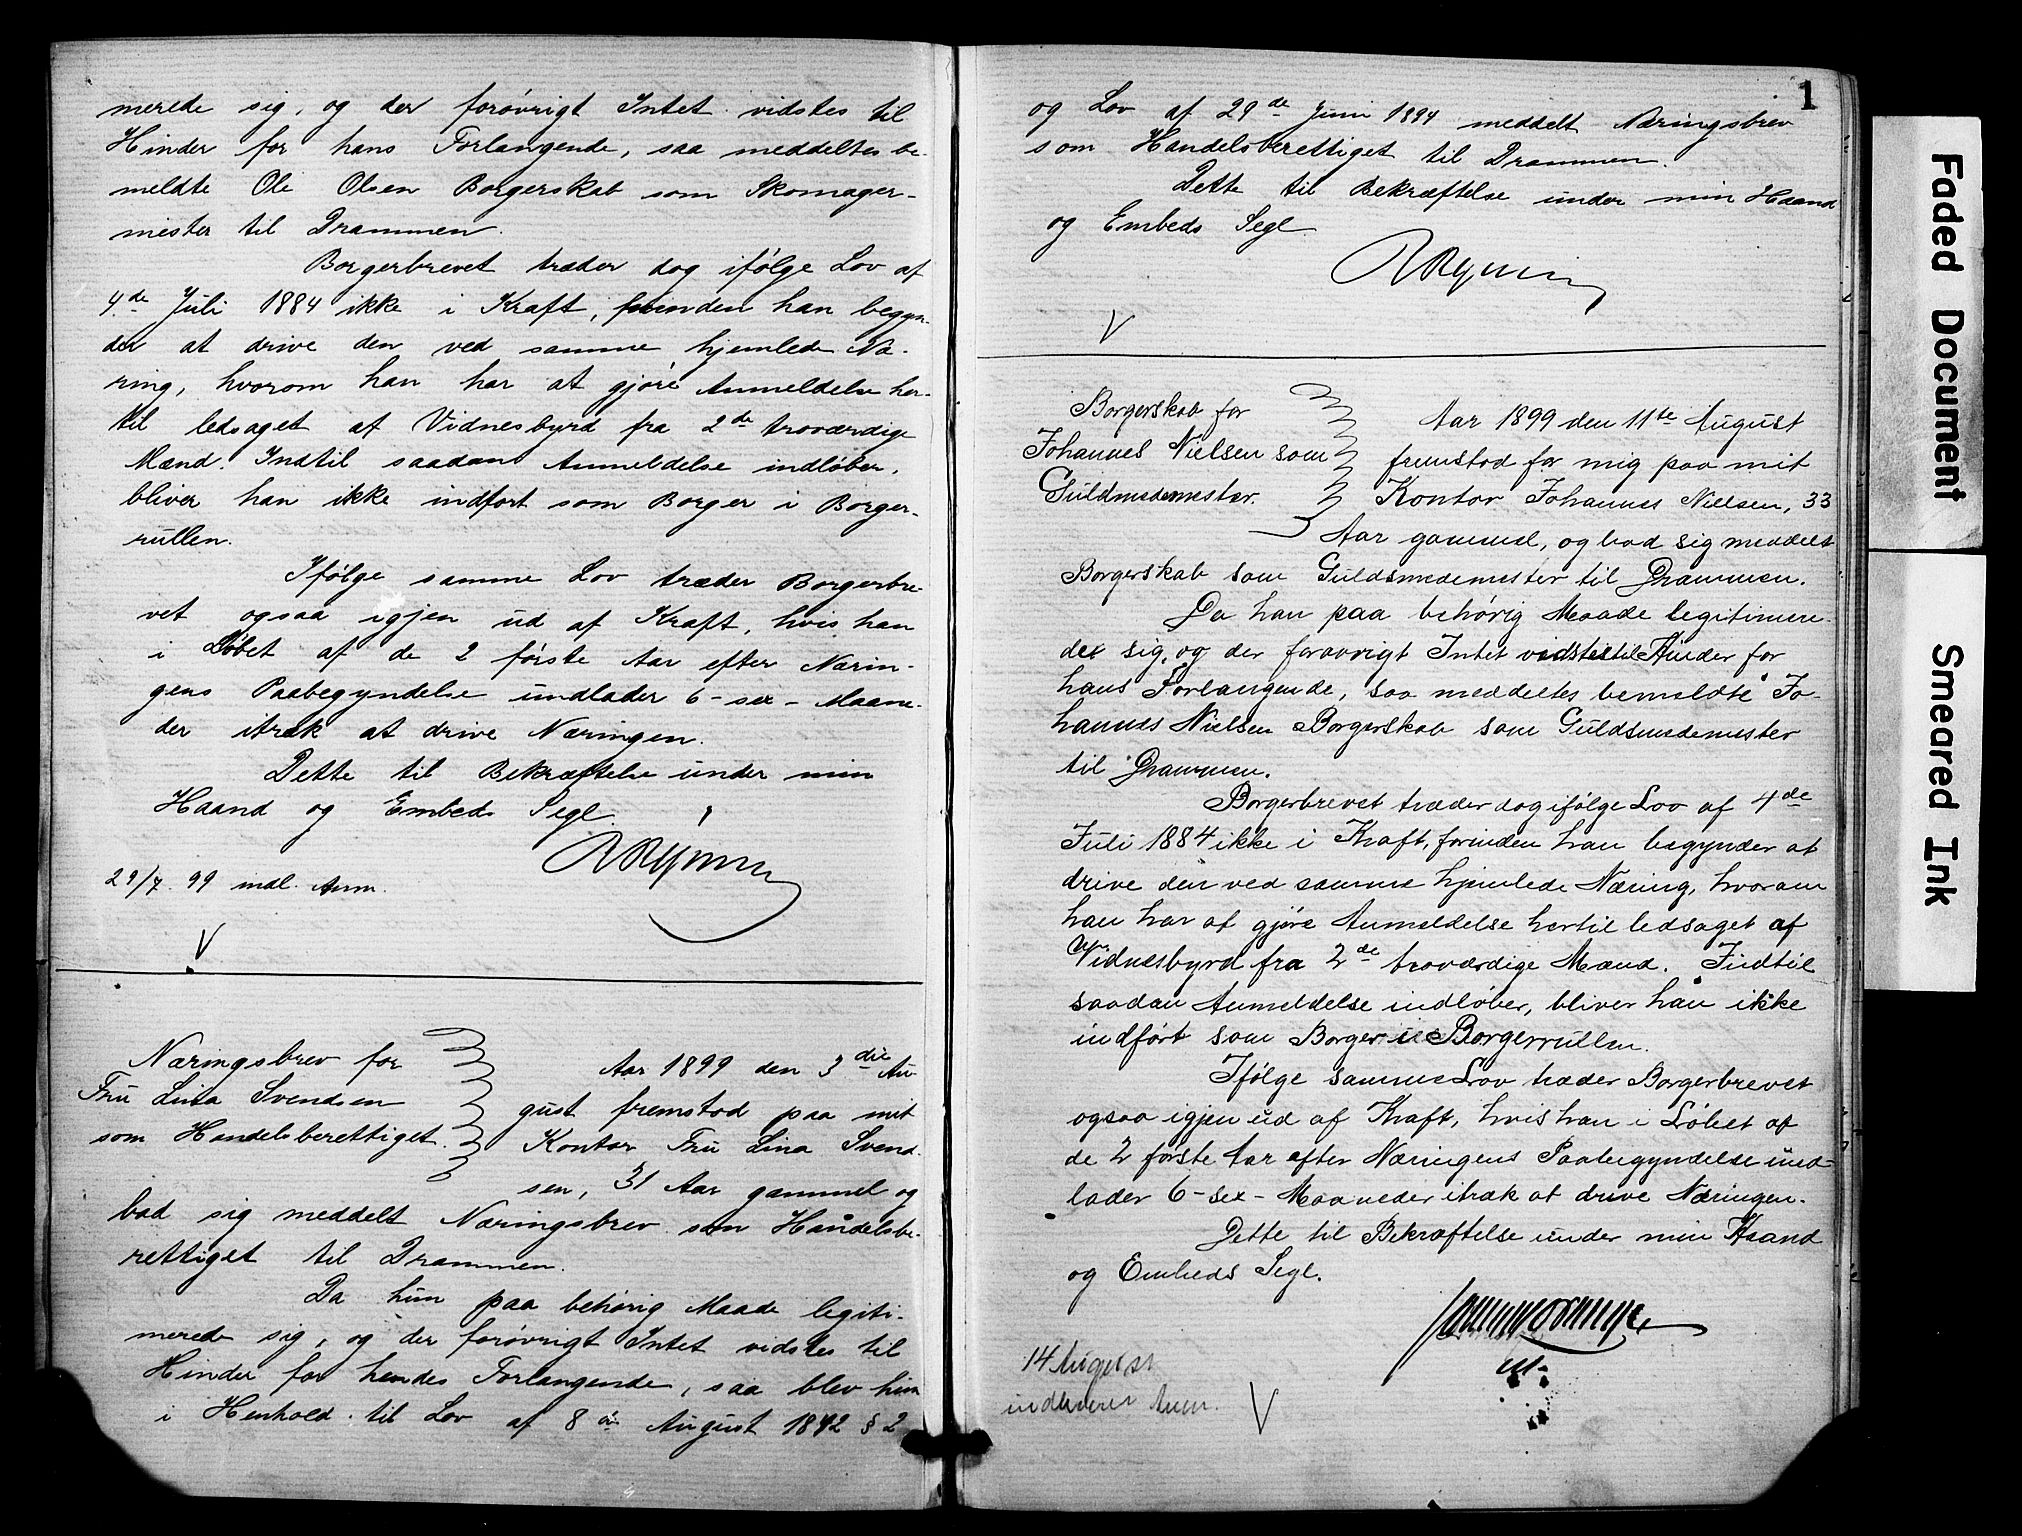 merede sig, og der forøvrigt Intet vidstes til
Hinder for hans Forlangende, saa meddeltes be-
meldte Ole Olsen Borgerskab som Skomager-
mester til Drammen.
Borgerbrevet træder dog ifølge Lov af
4de Juli 1884 ikke i Kraft, forinden han begyn-
der at drive den ved samme hjemlede Næ-
ring, hvorom han har at gjøre Anmeldelse her-
til ledsaget af Vidnesbyrd fra 2de troværdige
Mænd. Indtil saadan Anmeldelse indløber,
bliver han ikke indført som Borger i Borger-
rullen.
Ifølge samme Lov træder Borgerbre-
vet ogsaa igjen ud af Kraft, hvis han
i Løbet af de 2 første Aar efter Nærin-
gens Paabegyndelse undlader 6 - sex - Maane-
der itræk at drive Næringen.
Dette til Bekræftelse under min
Haand og Embeds Segl.
29/7. 99 indl. Anm.
V
Næringsbrev for
Fru Lina Svendsen
som Handelsberettiget.
Aar 1899 den 3die Au-
gust fremstod paa mit
Kontor Fru Lina Svend-
sen, 31 Aar gammel og
bad sig meddelt Næringsbrev som Handelsbe-
rettiget til Drammen.
Da hun paa behørig Maade legiti-
merede sig, og der forøvrigt Intet vidstes til
Hinder for hendes Forlangende, saa blev hun
i Henhold til Lov af 8de August 1842 § 2
1
og Lov af 29de Juni 1894 meddelt Næringsbrev
som Handelsberettiget til Drammen.
Dette til Bekræftelse under min Haand
og Embeds Segl
V
Borgerskab for
Johannes Nielsen som
Guldmedemester.
Aar 1899 den 11te August
fremstod for mig paa mit
Kontor Johannes Nielsen, 33
Aar gammel, og bad sig meddelt
Borgerskab som Guldsmedemester til Drammen.
Da han paa behørig Maade legitimere-
der sig, og der forøvrigt Intet vidstes til Hinder for
hans Forlangende, saa meddeltes bemeldte Jo-
hannes Nielsen Borgerskab som Guldsmedemester
til Drammen.
Borgerbrevet træder dog ifølge Lov af 4de
Juli 1884 ikke i Kraft, forinden han begynder at
drive den ved samme hjemlede Næring, hvorom
han har at gjøre Anmeldelse hertil ledsaget af
Vidnesbyrd fra 2de troværdige Mænd. Indtil
saadan Anmeldelse indløber, bliver han ikke
indført som Borger i Borgerrullen.
Ifølge samme Lov træder Borgerbrevet
ogsaa igjen ud af Kraft, hvis han i Løbet af
de 2 første Aar efter Næringens Paabegyndelse und-
lader 6 - sex - Maaneder itræk at drive Næringen.
Dette til Bekræftelse under min Haand
og Embeds Segl.
14 August
indleveret Anm.
V
Faded Document
Smeared Ink